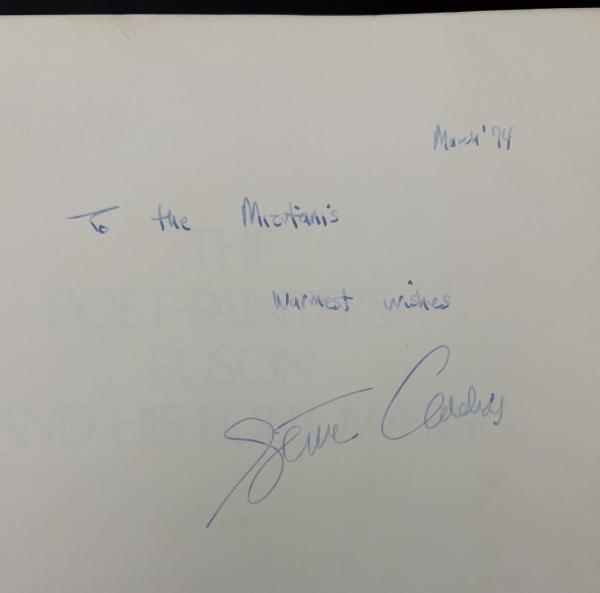 March '74
To the Mizutani's
Warmest wishes
THE
POET-PAINTERS
BUSON
AND HIS FOLLOWERS
Steve Addiss